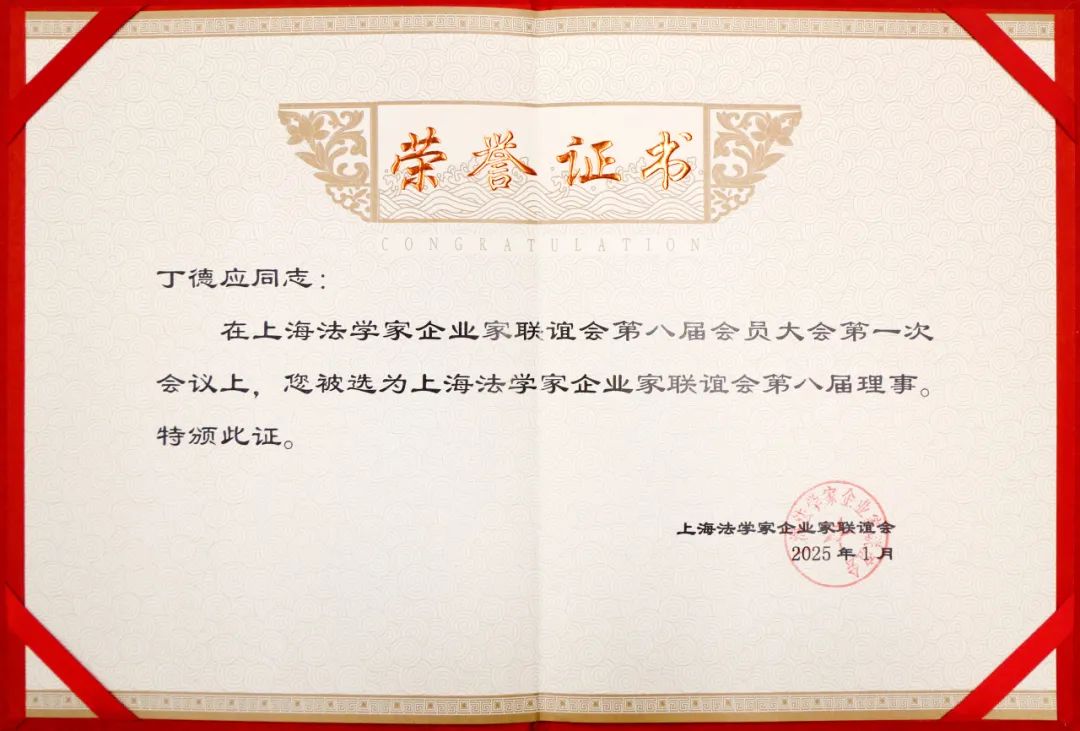 荣誉证书
CONGRATULATION
丁德应同志：
在上海法学家企业家联谊会第八届会员大会第一次
会议上，您被选为上海法学家企业家联谊会第八届理事。
特颁此证。
上海法学家企业家联谊会
2025年1月